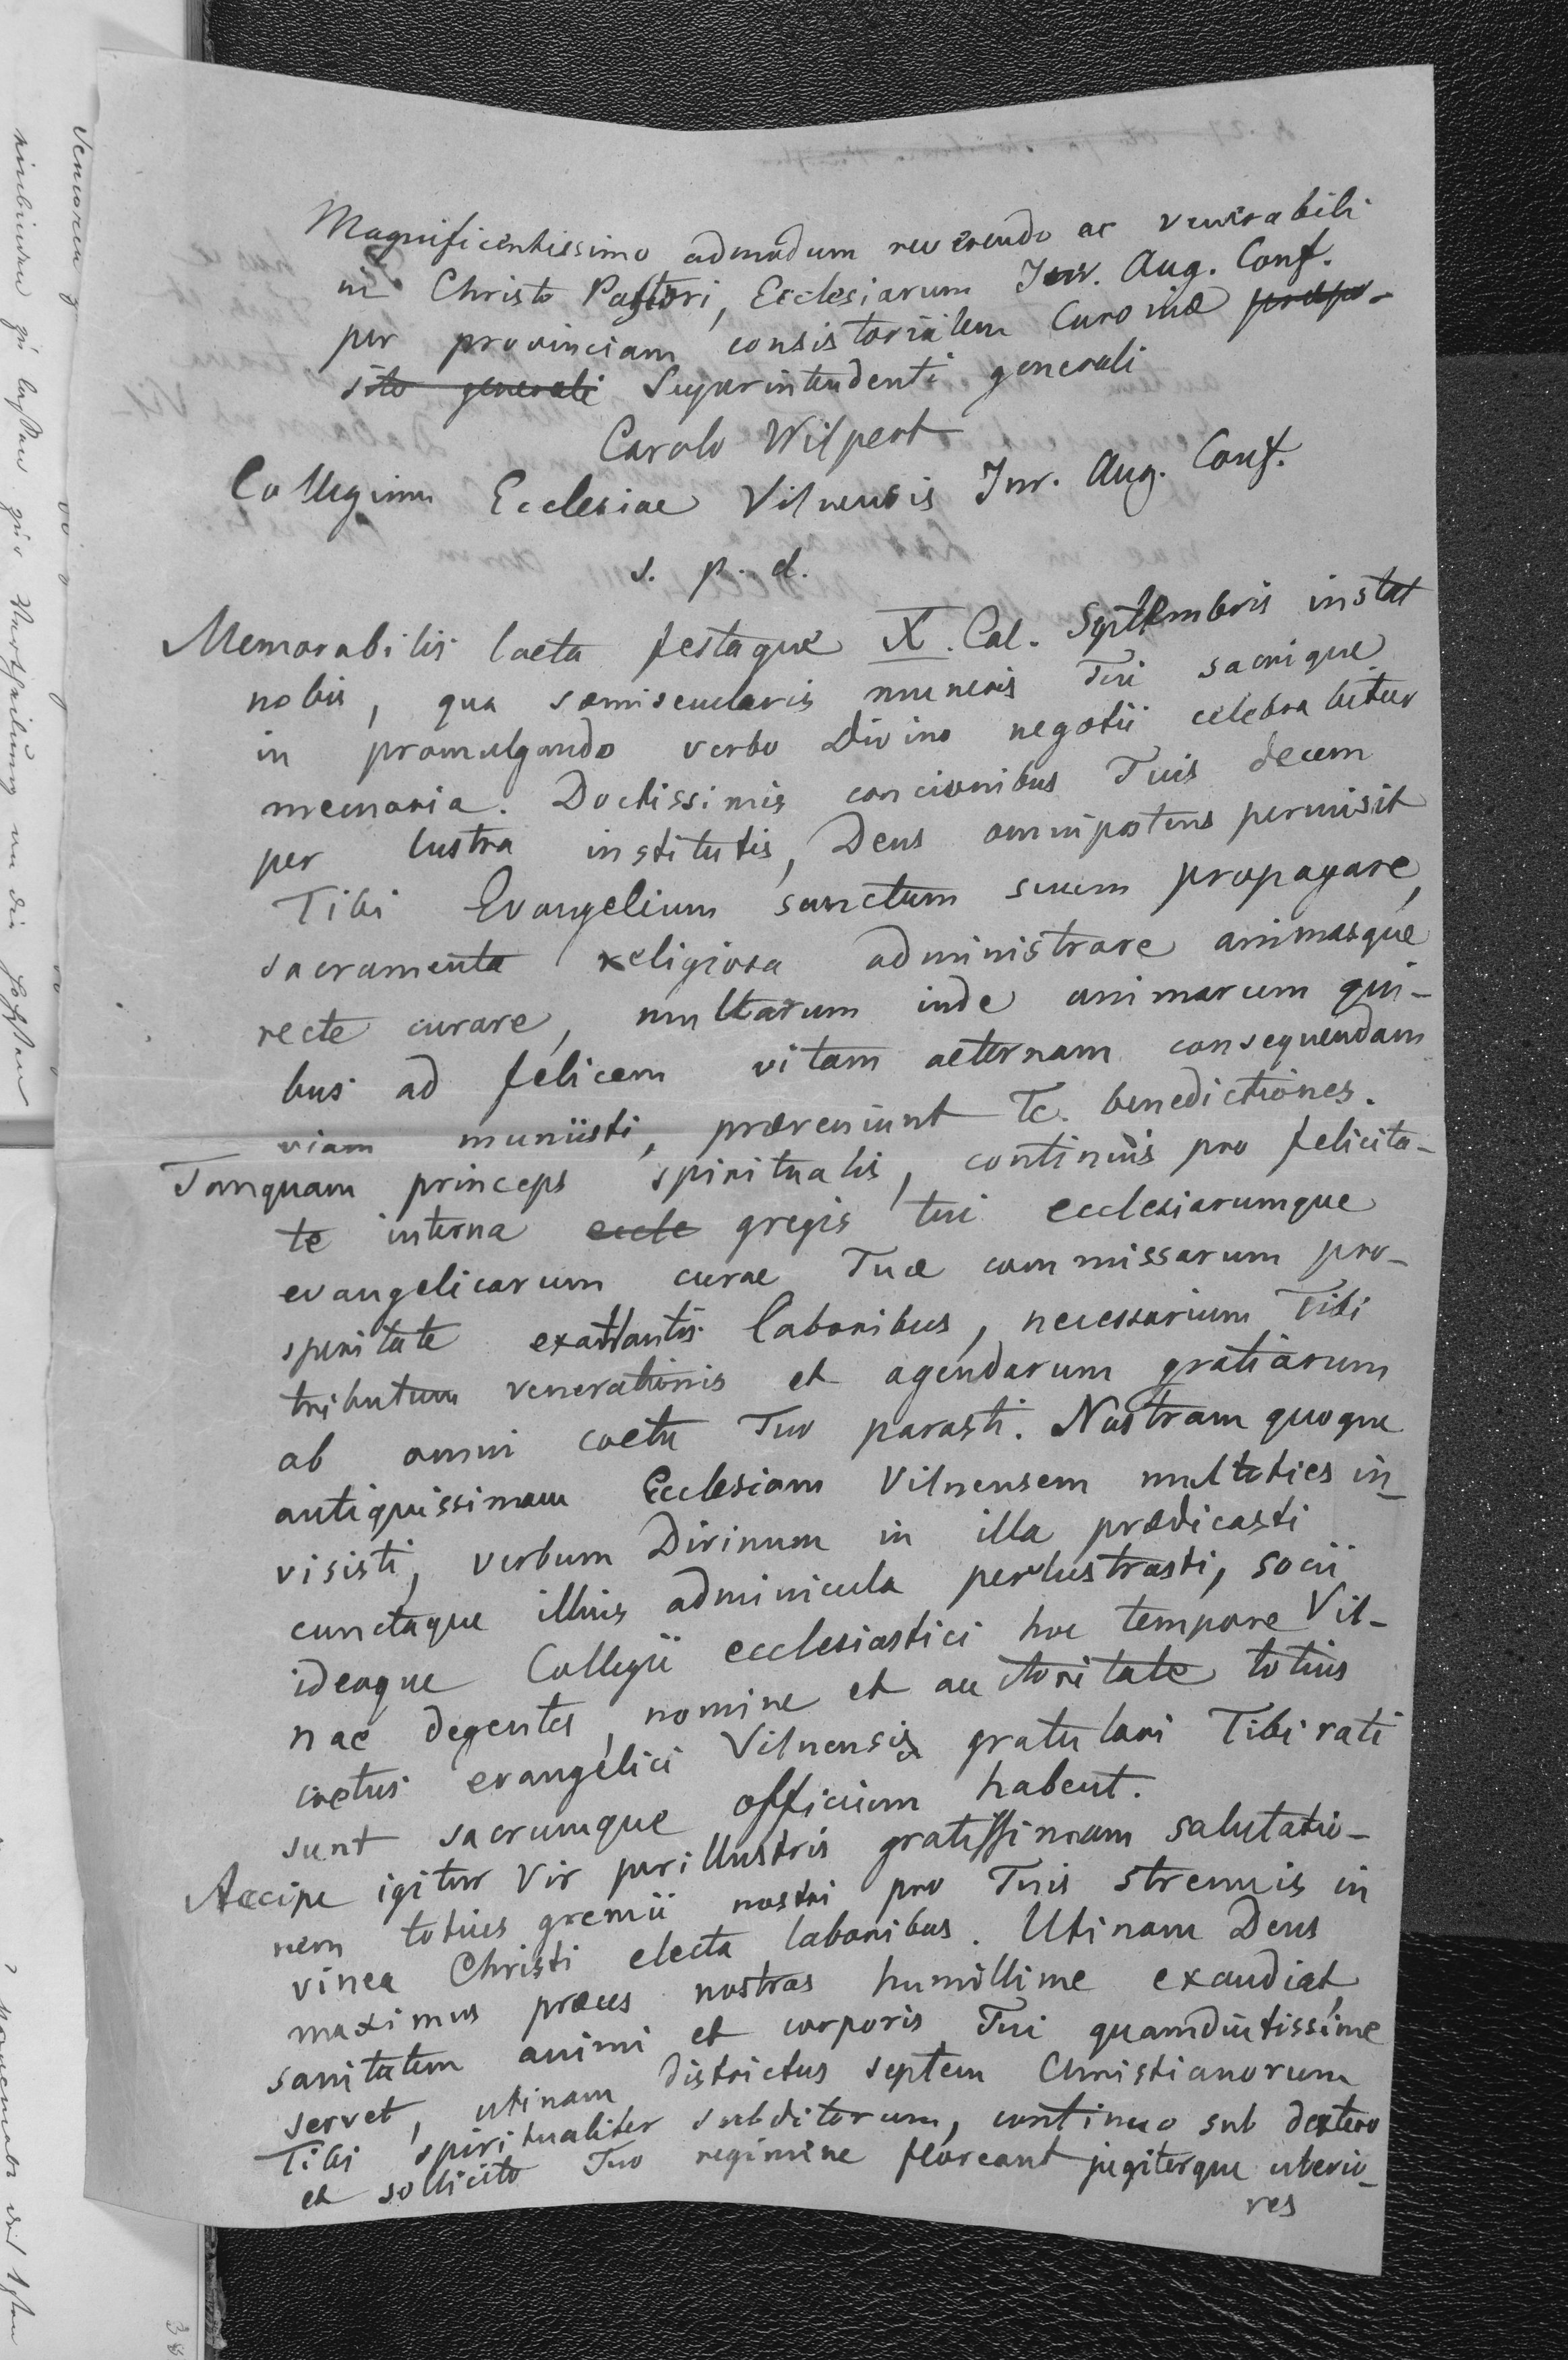 Magnificentissimo admodum reverendo ac venerabili
in Christo Pastori, Ecclesiarum Inv. Aug. Conf.
per provinciam consistorialem Curoniæ præpo-
sito generali Superintendenti generali
Carolo Wilpert
Collegium Ecclesiae Vilnensis Inv. Aug. Conf.
s. p. d.
Memorabilis laeta festaque X. Cal. Septembris instat
nobis, qua semisecularis muneris Tui sacrique
in promulgando verbo Divino negotii celebrabitur
memoria. Doctissimis concionibus Tuis decem
per lustra institutis, Deus omnipotens permisit
Tibi Evangelium sanctum suum propagare,
sacramenta religiosa administrare animasque
recte curare, multarum inde animarum qui-
bus ad felicem vitam aeternam consequendam
viam muniisti, præveniunt Te benedictiones.
Tanquam princeps spiritualis, continuis pro felicita-
te interna eccle gregis tui ecclesiarumque
evangelicarum curae Tuæ commissarum pro-
speritate exantlantis laboribus, necessarium Tibi
tributum venerationis et agendarum gratiarum
ab omni coetu Tuo parasti. Nostram quoque
antiquissimam Ecclesiam Vilnensem multoties in-
visisti, verbum Divinum in illa prædicasti
cunctaque illius adminicula perlustrasti, socii
ideoque Collegii ecclesiastici hoc tempore Vil-
nae degentes, nomine et auctoritate totius
coetus evangelici Vilnensis gratulari Tibi rati
sunt sacrumque officium habent.
Accipe igitur Vir perillustris gratissimam salutatio-
nem totius gremii nostri pro Tuis strenuis in
vinea Christi electa laboribus. Utinam Deus
maximus preces nostras humillime exaudiat,
sanitatem animi et corporis Tui quamdiutissime
servet, utinam districtus septem Christianorum
Tibi spiritualiter subditorum, continuo sub dextero
et sollicito Tuo regimine floreant jugiterque uberio-
res
38